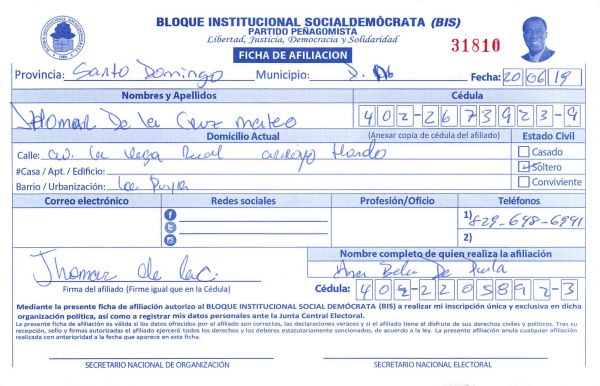 BLOQUE INSTITUCIONAL SOCIALDEMÓCRATA (BIS)
PARTIDO PEÑAGOMISTA
Libertad, Justicia, Democracia y Solidaridad
31810
FICHA DE AFILIACION
Provincia: Santo Domingo Municipio: Fecha: 20/06/19
Nombres y Apellidos Cédula
Jhomar De la Cruz mateo 402-2673923-9
Domicilio Actual (Anexar copia de cédula del afiliado) Estado Civil
Calle: av. la vega Real arroyo Hondo Casado
#Casa / Apt. / Edificio: Soltero
Barrio / Urbanización: La Puya Conviviente
Correo electrónico Redes sociales Profesión/Oficio Teléfonos
1) 829-698-6991
2)
Nombre completo de quien realiza la afiliación
Jhomar de la C. Ana De
Firma del afiliado (Firme igual que en la Cédula) Cédula: 402-2205892-3
Mediante la presente ficha de afiliación autorizo al BLOQUE INSTITUCIONAL SOCIAL DEMÓCRATA (BIS) a realizar mi inscripción única y exclusiva en dicha
organización política, así como a registrar mis datos personales ante la Junta Central Electoral.
La presente ficha de afiliación es válida si los datos ofrecidos por el afiliado son correctos, las declaraciones véraces y si el afiliado tiene el disfrute de sus derechos civiles y políticos. Tras su
recepción, sello y firmas autorizadas el afiliado ejercerá todos los derechos y los deberes estatutariamente sancionados, de acuerdo a la ley. La presente afiliación anula cualquier afiliación
realizada con anterioridad a la fecha que aparece en esta ficha.
SECRETARIO NACIONAL DE ORGANIZACIÓN SECRETARIO NACIONAL ELECTORAL